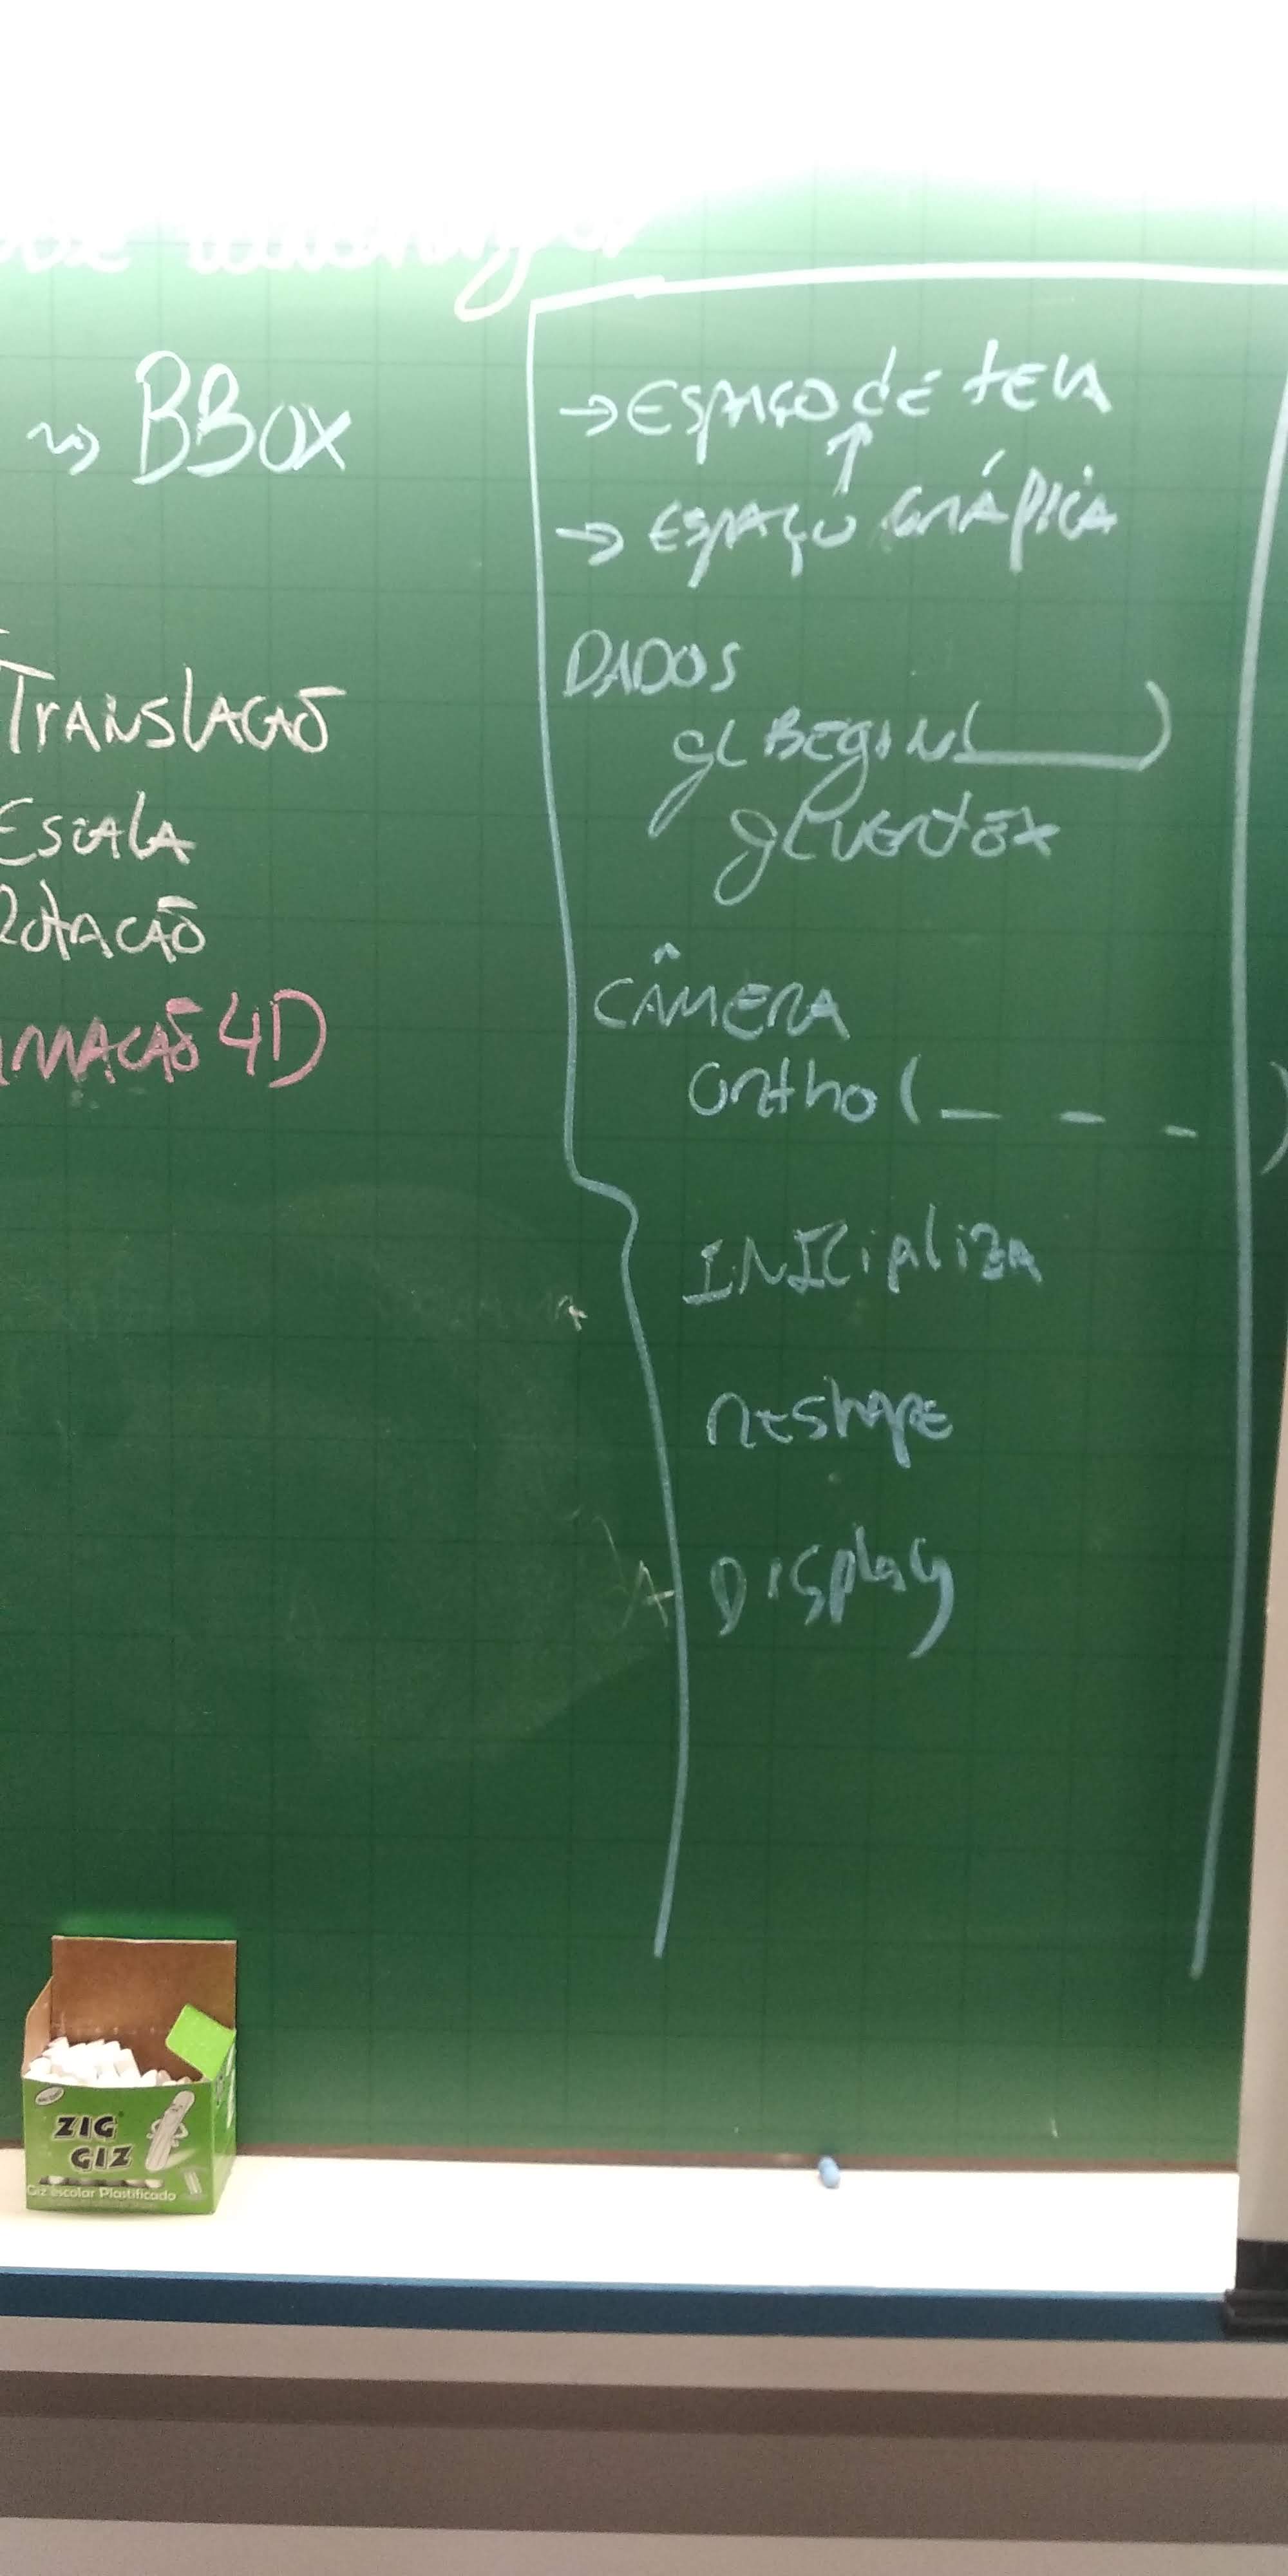 ~> BBOX
TRANSLAÇÃO
ESCALA
ROTAÇÃO
MAÇÃO 4D
→ ESPAÇO de tELA
↑
→ ESPAÇO GRÁFICA
DADOS
glBEGIN(____)
glVERTEX
CÂMERA
ORtho(_ _ _)
INICIALIZA
RESHAPE
DISPLAY
ZIG
GIZ
Giz escolar Plastificado